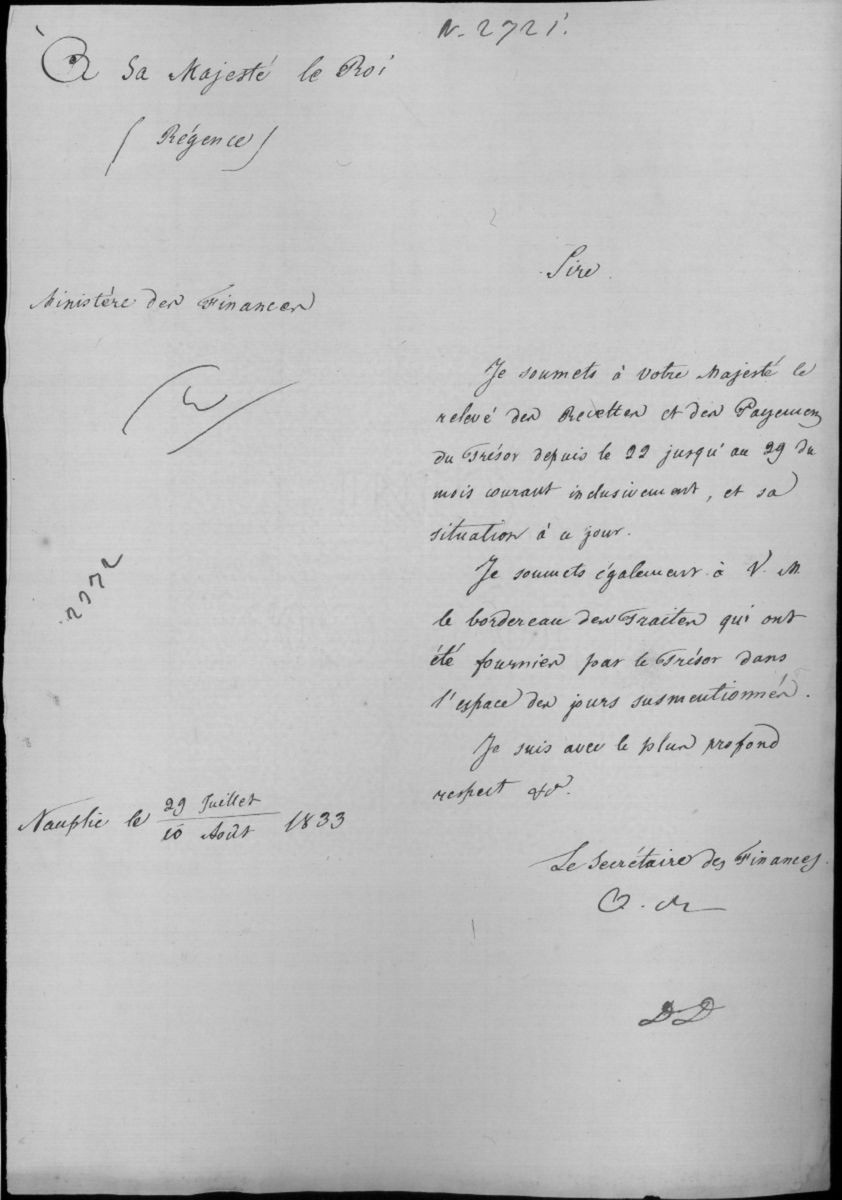 N. 2721.
A Sa Majesté le Roi
( Régence )
Ministère des Finances
2772
Nauplie le 29 Juillet / 10 Août 1833
Sire
Je soumets à Votre Majesté le
relevé des Recettes et des Payemens
du Trésor depuis le 22 jusqu'au 29 du
mois courant inclusivement, et sa
situation à ce jour.
Je soumets également à V. M.
le bordereau des Traites qui ont
été fournies par le Trésor dans
l'espace des jours susmentionnés.
Je suis avec le plus profond
respect &c.
Le Secrétaire des Finances.